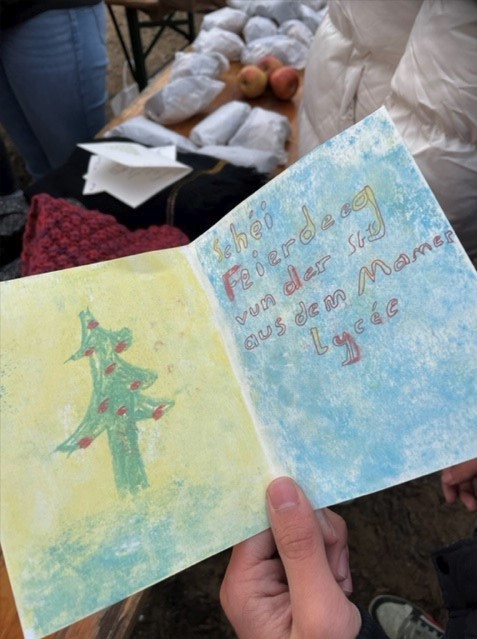 Schéi
Feierdeeg
vun der
aus dem Mamer
Lycée